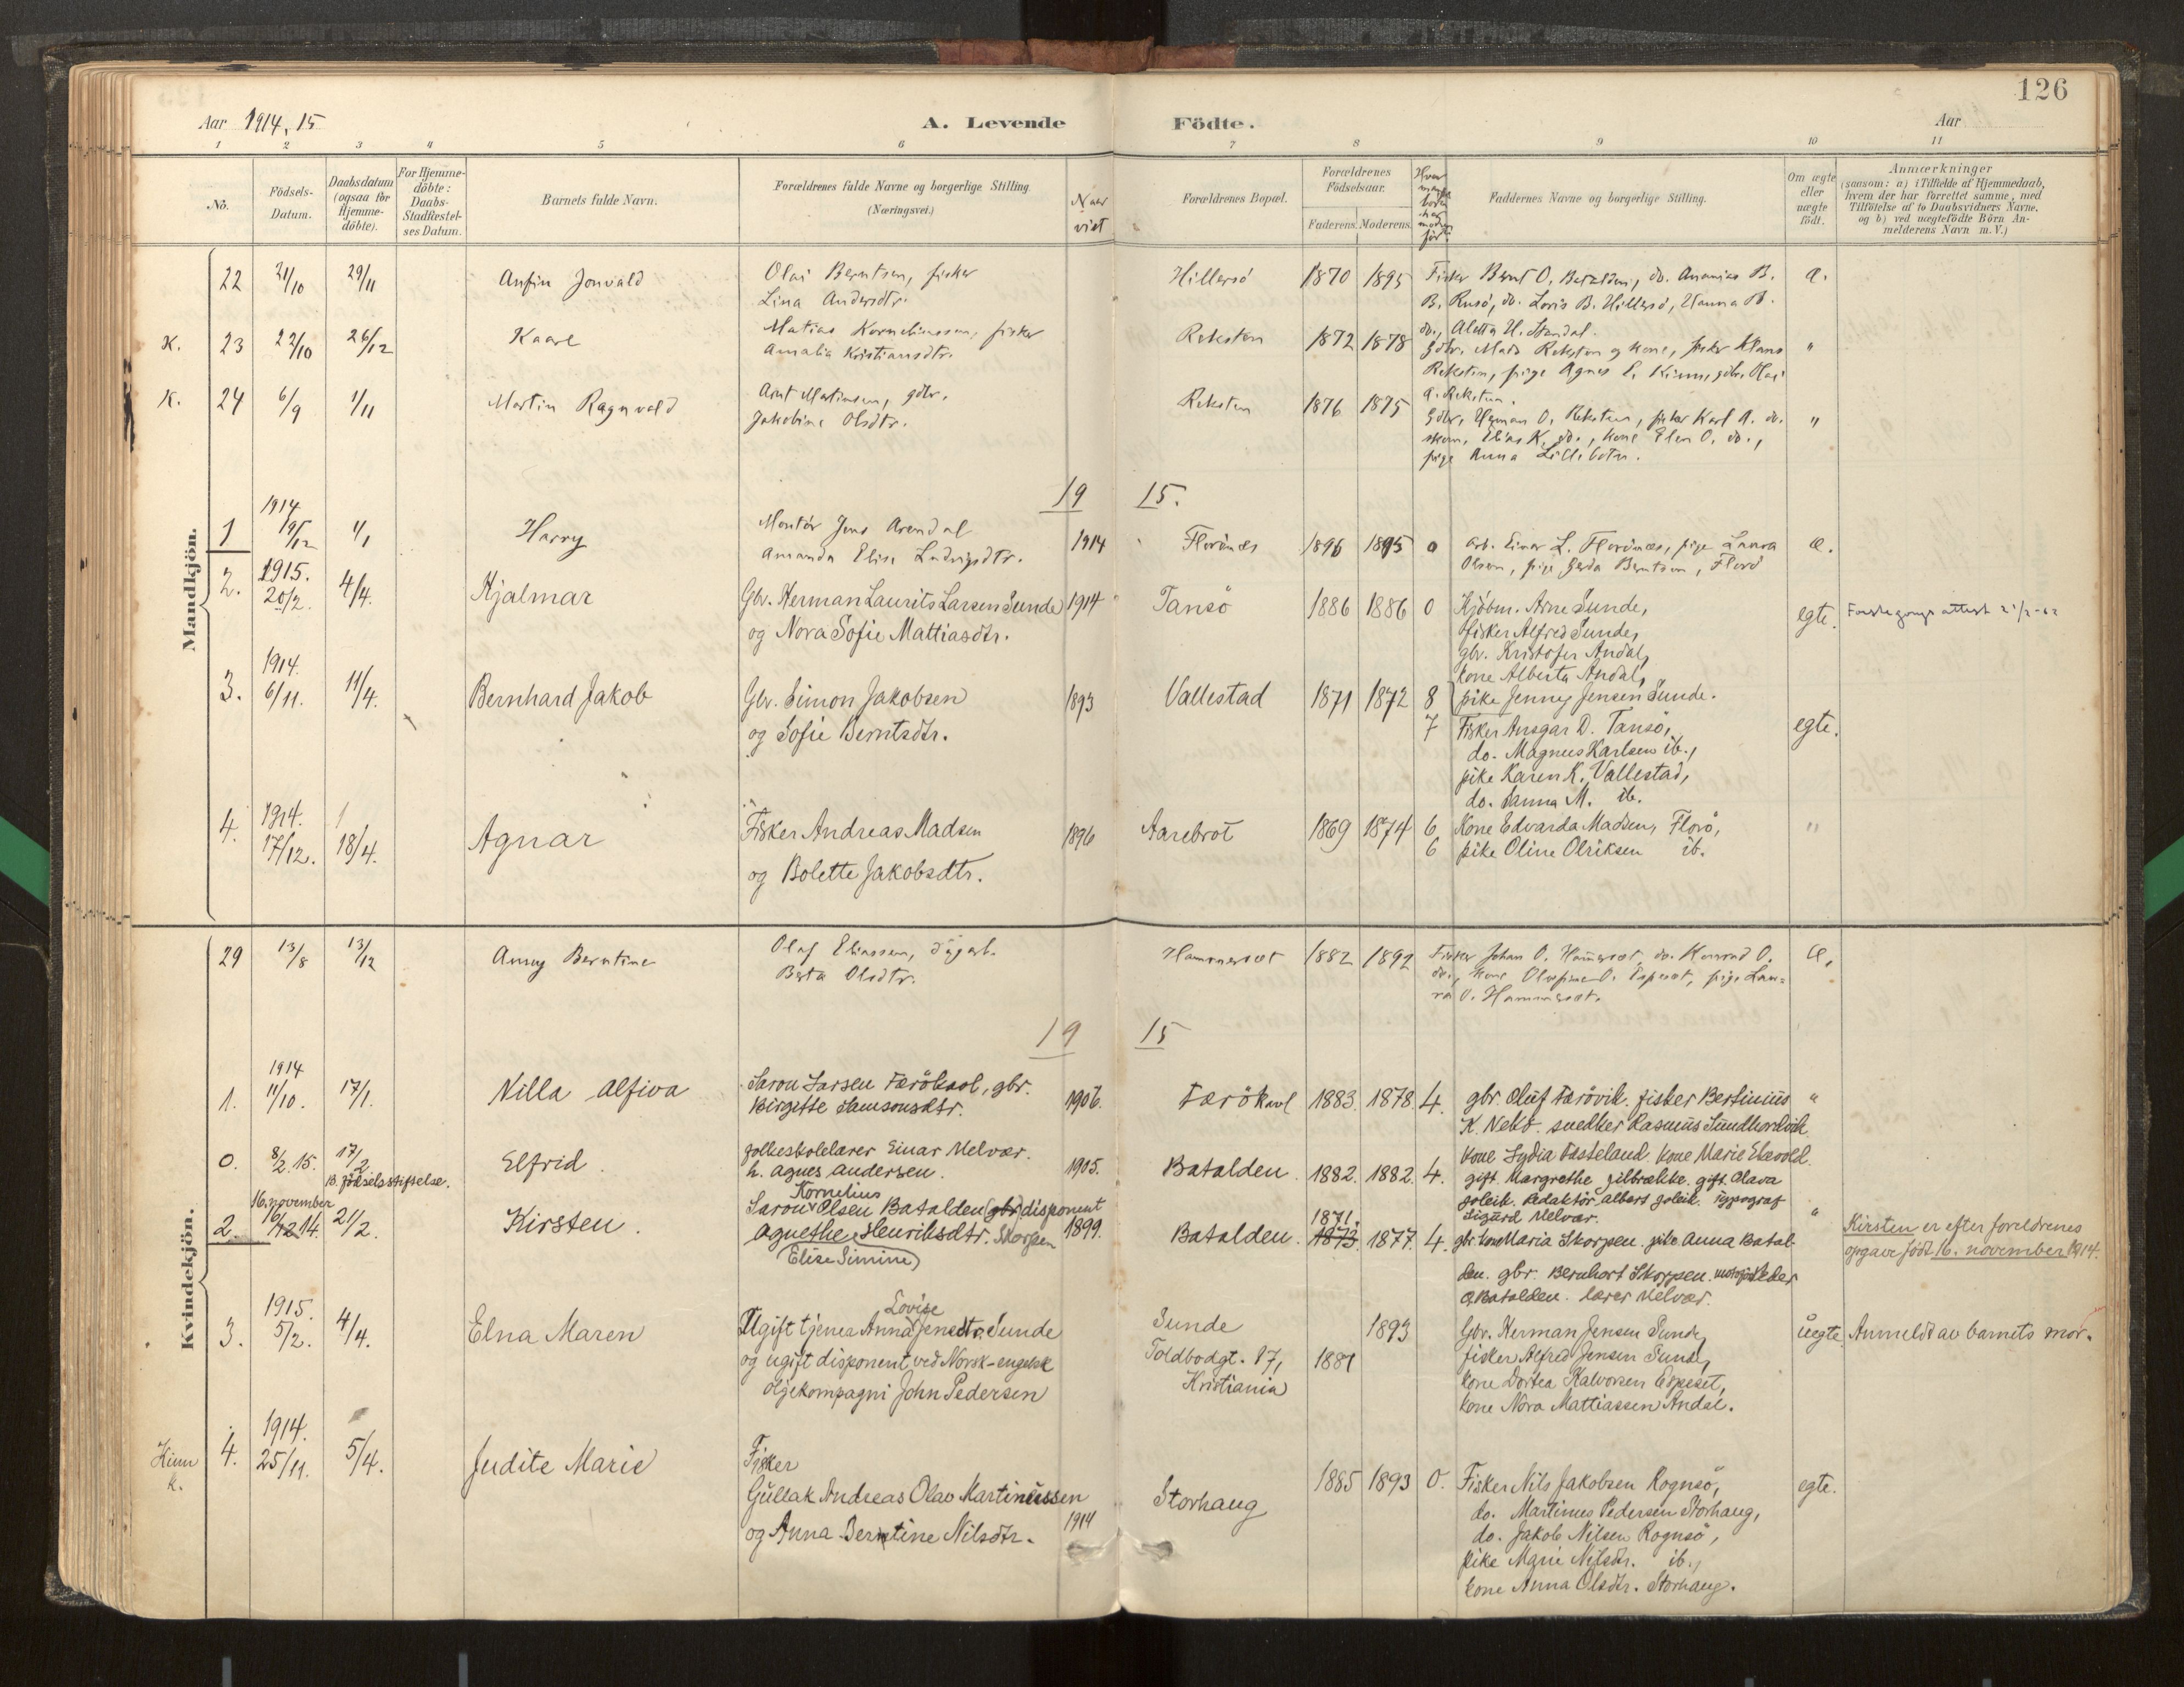 126
Aar 1914, 15
A. Levende Födte.
Aar
1 2 3 4 5 6 7 8 9 10 11
No.
Födsels-Datum.
Daabsdatum (ogsaa for Hjemme-döbte).
For Hjemme-döbte: Daabs-Stadfæstel-ses Datum.
Barnets fulde Navn.
Forældrenes fulde Navne og borgerlige Stilling.
(Næringsvei.)
Naar viet
Forældrenes Bopæl.
Forældrenes Födselsaar.
Faderens. Moderens.
Faddernes Navne og borgerlige Stilling.
Om ægte eller uægte födt.
Anmærkninger
(saasom: a) i Tilfælde af Hjemmedaab,
hvem der har forrettet samme, med
Tilföielse af to Daabsvidners Navne,
og b) ved uægtefödte Börn An-
melderens Navn m. V.)
Mandkjön.
22 21/10 29/11 Anfin Jonvald Olai Berntsen, fisker Hillersö 1870 1895 Fisker Bernt O. Batalden, do. Ananias B. æ.
Lina Andersdtr. B. Rusö, do. Loris B. Hillersö, Hanna B.
do., Aletta H. Standal.
K. 23 22/10 26/12 Kaare Matias Korneliussen, fisker Reksten 1872 1878 Gdbr. Mads Reksten og kone, fisker Klaus "
Amalia Kristiansdtr. Reksten, pige Agnes L. Kinn, gdbr. Olai
A. Reksten.
K. 24 6/9 1/11 Martin Ragnvald Arnt Martinsen, gdbr. Reksten 1876 1875 Gdbr. Herman O. Reksten, fisker Karl A. do. "
Jakobine Olsdtr. Elias K. do., kone Elen O. do.,
pige Anna Lillebotn.
19 15.
1914
1 19/12 1/1 Harry Montör Jens Arendal 1914 Florönes 1896 1895 0 arb. Einar L. Florönæs, pige Laura æ.
Amanda Elise Ludvigsdtr. Olsen, pige Gerda Berntsen, Florö
1915.
2. 20/2. 4/4. Hjalmar Gbr. Herman Laurits Larsen Sunde 1914 Tansö 1886 1886 0 Kjöbm. Arne Sunde, egte.
og Nora Sofie Mattiasdtr. fisker Alfred Sunde,
gbr. Kristofer Andal,
kone Alberta Andal,
pike Jenny Jensen Sunde.
1914.
3. 6/11. 11/4. Bernhard Jakob Gbr. Simon Jakobsen 1893 Vallestad 1871 1872 8
og Sofie Berntsdtr. 7 Fisker Ansgar D. Tansö, egte.
do. Magnus Karlsen ib.,
pike Karen K. Vallestad,
do. Sanna M. ib.
1914.
4. 17/12. 18/4. Agnar Fisker Andreas Madsen 1896 Aarebrot 1869 1874 6 Kone Edvarda Madsen, Florö, "
og Bolette Jakobsdtr. 6 pike Oline Olriksen ib.
Kvindekjön.
29 13/8 13/12 Anny Berntine Olaf Eliassen, Hammerset 1882 1892 Fisker Johan O. Hammerset, do. Konrad O. æ.
Berta Olsdtr. do., kone Olefine O. Espeset, pige Lau-
ra O. Hammerset.
19 15
1914
1. 11/10. 17/1. Nilla Alfiva Saron Larsen Færökavl, gbr. 1906. Færökavl 1883. 1878. 4. gbr Oluf Færövik. fisker Bertinius "
Birgitte Samsonsdtr. K. Nekö. snedker Rasmus Sundhordvik
kone Lydia Fasteland kone Marie Elvevold.
0. 8/2. 15. 17/2 Elfrid. folkeskolelærer Einar Melvær. 1905. Batalden. 1882. 1882. 4. gift Margrethe Gilbrække. gift Olava
B. födselsstiftelse. h. Agnes Andersen. Soleik. Redaktör Albert Soleik. typograf
Sigurd Melvær.
16. november
2. 16/12 14. 21/2. Kirsten. Saron Kornelius Olsen Batalden (gbr) disponent 1899. Batalden. 1871. 1873. 1877. 4. gbr kone Maria Skorpen. pike Anna Batal- "
Agnethe Henriksdtr. Skorpen den. gbr. Bernhart Skorpen. Peder
(Elise Simine) O. Batalden. lærer Melvær.
Kirsten er efter foreldrenes
opgave født 16. november 1914.
1915.
3. 5/2. 4/4. Elna Maren Ugift tjener Anna Lovise Jensdtr. Sunde Sunde 1893 Gbr. Herman Jensen Sunde, uegte. Anmeldt av barnets mor.
og ugift disponent ved Norsk-engelsk Toldbodgt. 17, 1881 fisker Alfred Jensen Sunde,
oljekompagni John Pedersen Kristiania kone Dortea Halvorsen Espeset,
kone Nora Mattiassen Andal.
1914.
Kinn k. 4. 25/11. 5/4. Judite Marie Fisker
Gullak Andreas Olav Martinussen Storhaug 1885 1893 0. Fisker Nils Jakobsen Rognsö, egte.
og Anna Berntine Nilsdtr. 1914 do. Martinus Pedersen Storhaug,
do. Jakob Nilsen Rognsö,
pike Marie Nilsdtr. ib.,
kone Anna Olsdtr. Storhaug.